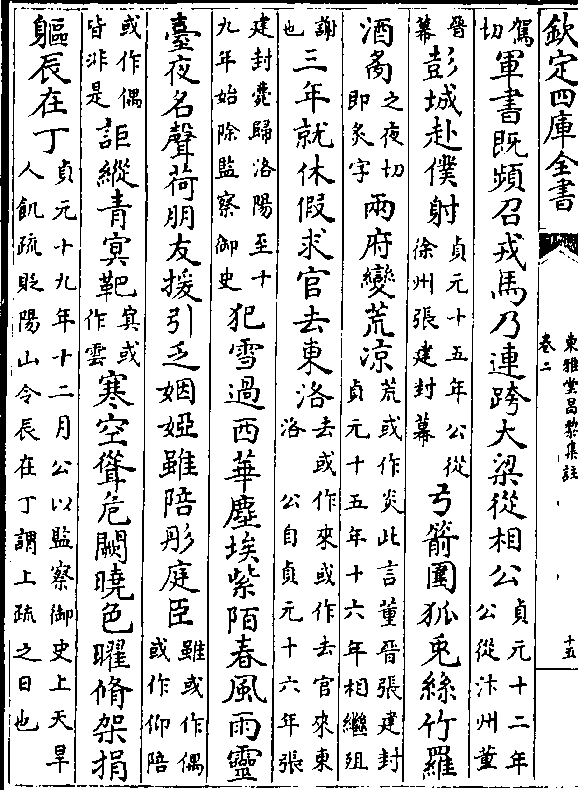 欽定四庫全書
東雅堂昌黎集註
卷二
十五
駕切軍書既頻召戎馬乃連跨大梁從相公貞元十二年公從汴州董
晉幕彭城赴僕射貞元十五年公從徐州張建封幕弓箭圍狐兎絲竹羅
酒之夜切即炙字兩府變荒涼荒或作炎此言董晉張建封貞元十五年十六年相繼殂
謝也三年就休假求官去東洛去或作來或作去官來東洛公自貞元十六年張
建封薨歸洛陽至十九年始除監察御史犯雪過西華塵埃紫陌春風雨靈
臺夜名聲荷朋友援引乏姻婭雖陪彤庭臣雖或作偶或作仰陪
或作偶皆非是詎縱青冥靶冥或作雲寒空聳危闕曉色曜脩架捐
軀辰在丁貞元十九年十二月公以監察御史上天旱人飢疏貶陽山令辰在丁謂上疏之日也